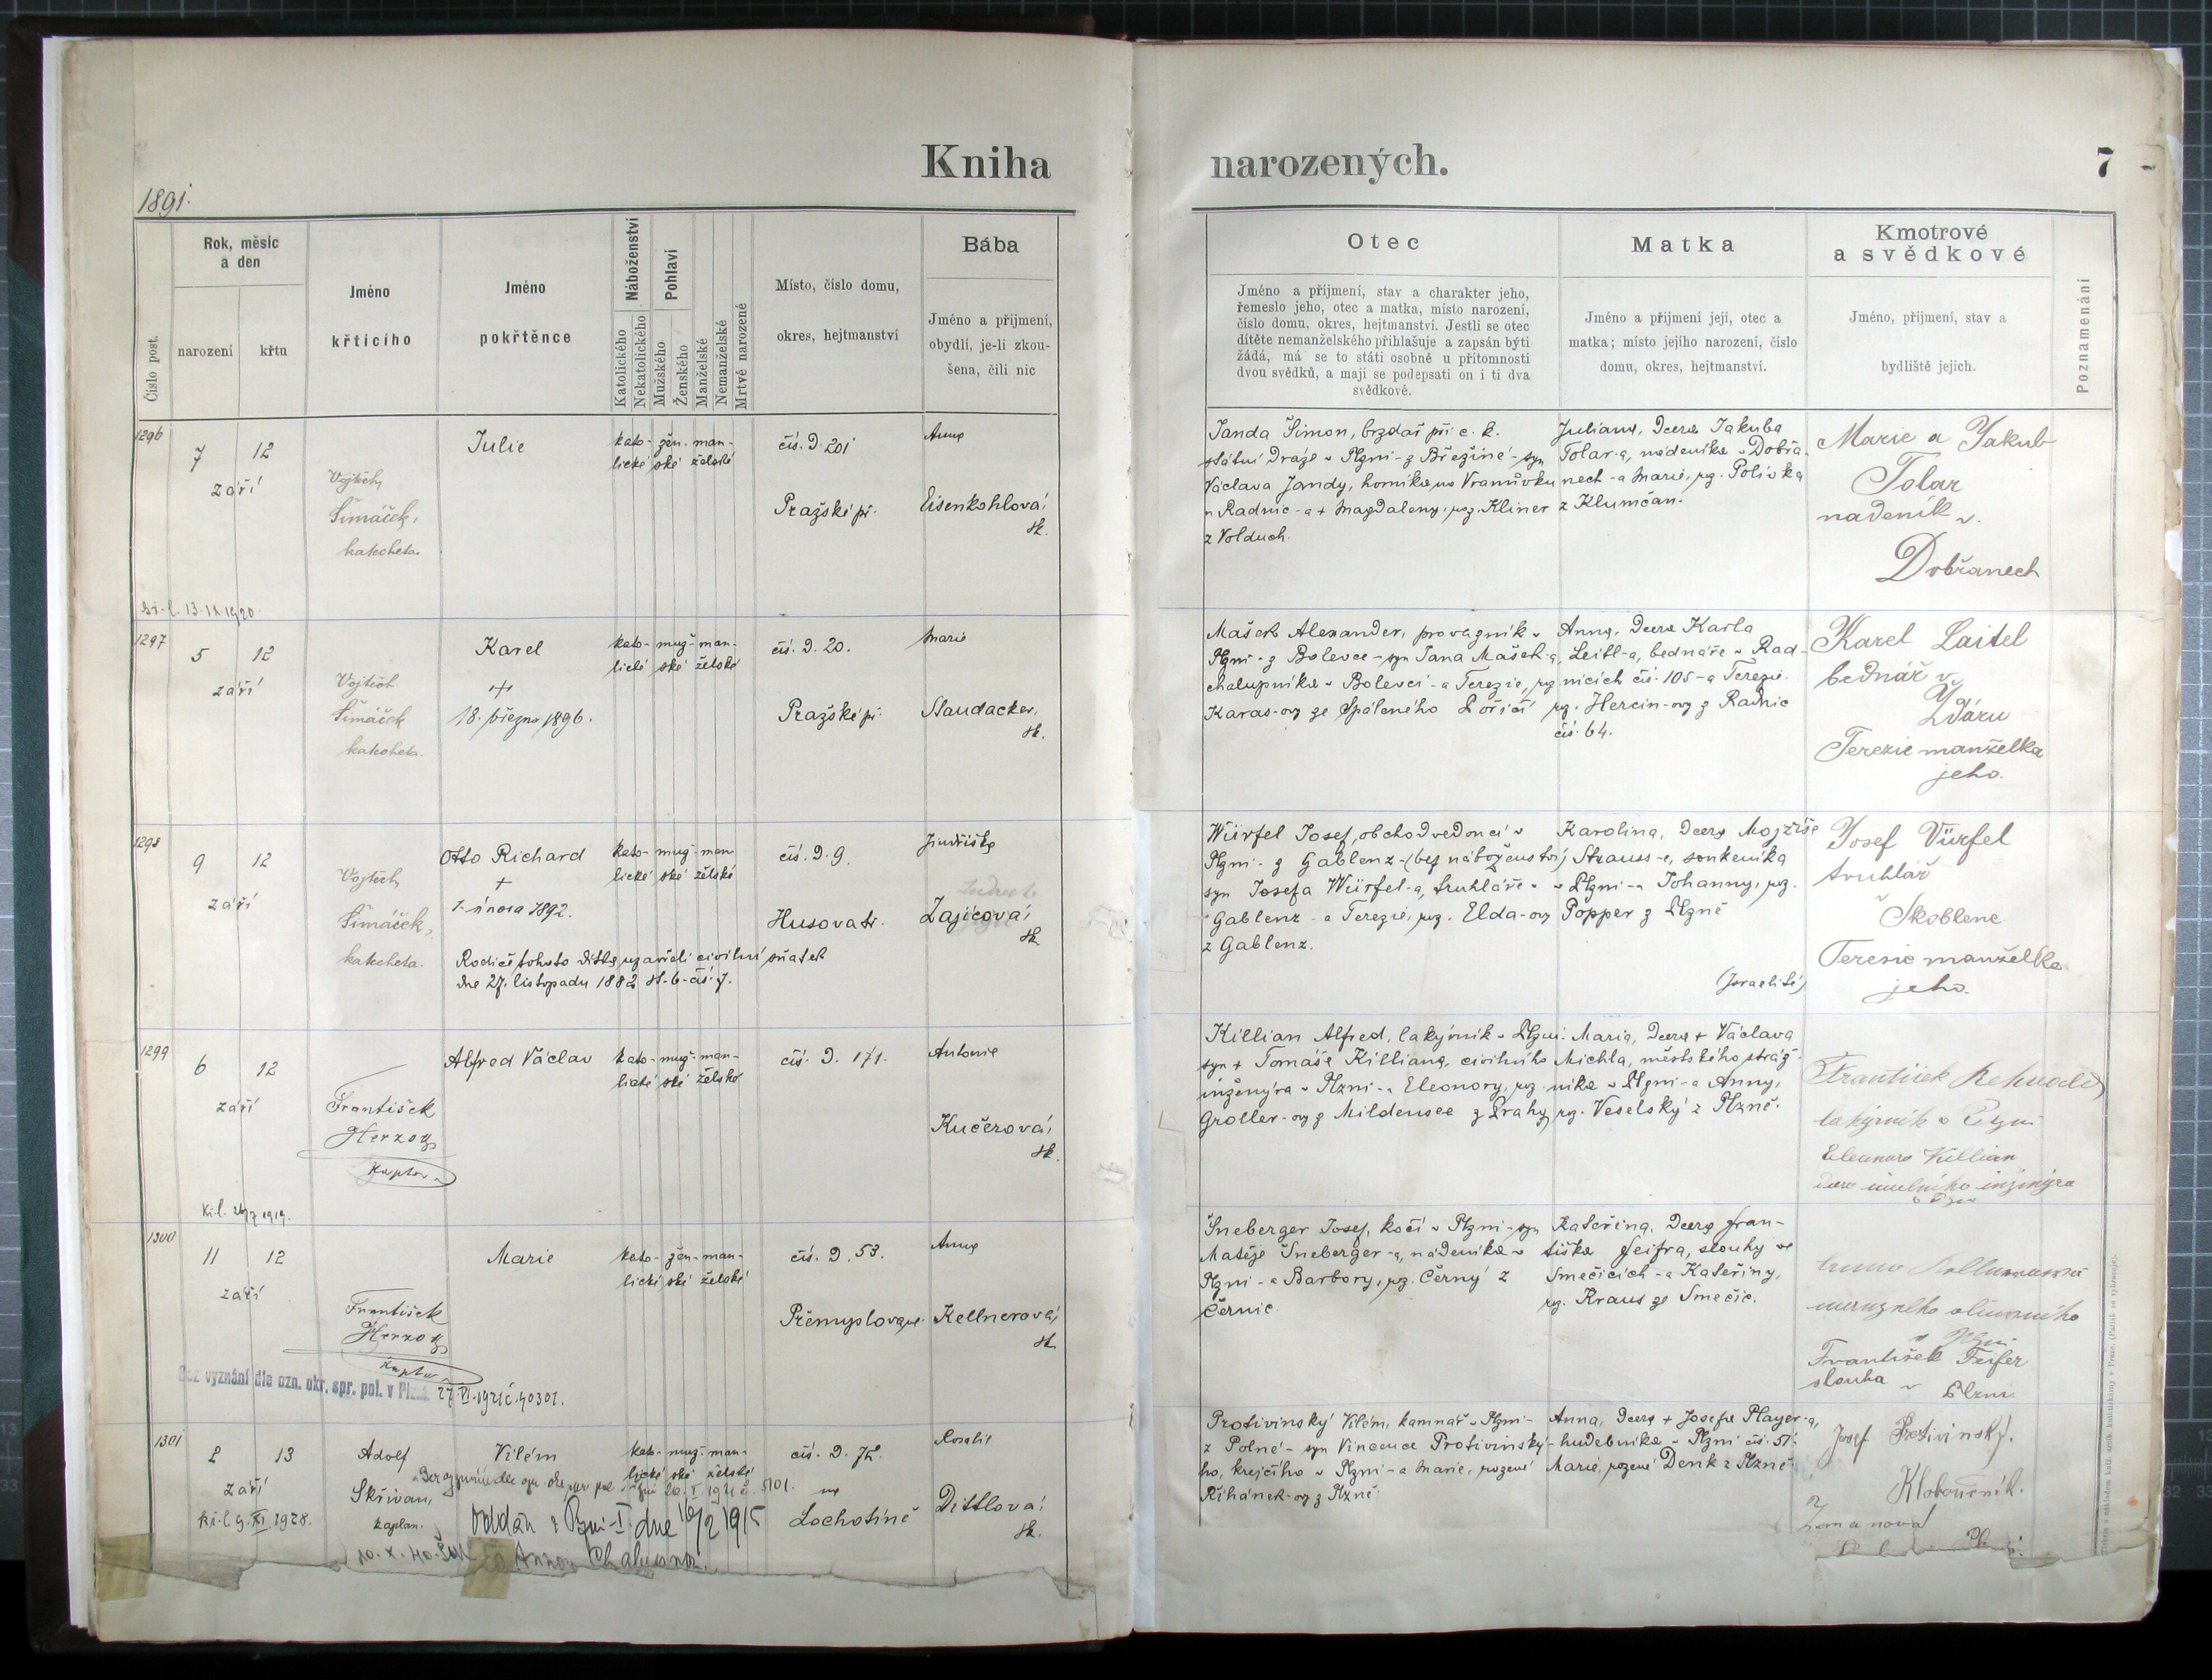 Kniha
narozených.
7
1891.
Číslo post.
Rok, měsíc
a den
narození
křtu
Jméno
křtícího
Jméno
pokřtěnce
Náboženství
Katolického
Nekatolického
Pohlaví
Mužského
Ženského
Manželské
Nemanželské
Mrtvě narozené
Místo, číslo domu,
okres, hejtmanství
Bába
Jméno a přijmení,
obydlí, je-li zkou-
šena, čili nic
Otec
Jméno a příjmení, stav a charakter jeho,
řemeslo jeho, otec a matka, místo narození,
číslo domu, okres, hejtmanství. Jestli se otec
dítěte nemanželského přihlašuje a zapsán býti
žádá, má se to státi osobně u přítomnosti
dvou svědků, a mají se podepsati on i ti dva
svědkové.
Matka
Jméno a přijmení její, otec a
matka; místo jejího narození, číslo
domu, okres, hejtmanství.
Kmotrové
a svědkové
Jméno, příjmení, stav a
bydliště jejich.
Poznamenání
1296
7 12
září
Vojtěch
Šimáček,
katecheta.
Julie
kato- žen- man-
lické ské želské
čís. D. 201
Pražské př.
Anna
Eisenkohlová,
zk.
Janda Šimon, brzdař při c. k.
státní Dráze v Plzni - z Březiné - syn
Václava Jandy, horníka na Vranůvku
u Radnic - a + Magdaleny, roz. Kliner
z Volduch.
Juliana, Dcera Jakuba
Tolar-a, nádeníka v Dobřa-
nech - a Marie, roz. Polívka
z Klumčan.
Marie a Jakub
Tolar
nadeník v.
Dobřanech
13. IX 1920.
1297
5 12
září
Vojtěch
Šimáček
katecheta.
Karel
+
18. března 1896.
kato- muž- man-
lické ské želské
čís. D. 20.
Pražské př.
Marie
Staudacher,
zk.
Mašek Alexander, provazník v
Plzni - z Bolevce - syn Jana Mašek-a,
chalupníka v Bolevci - a Terezie, roz.
Karas-ovy ze Spáleného Poříčí
Anna, Dcera Karla
Leitl-a, bednáře v Rad-
nicích čís. 105 - a Terezie.
roz. Hercin-ovy z Radnic
čís. 64.
Karel Laitel
bednář v.
Ždáru
Terezie manželka
jeho.
1298
9 12
září
Vojtěch
Šimáček,
katecheta.
Otto Richard
+
1. února 1892.
Rodiče tohoto dítka uzavřeli civilní sňatek
dne 27. listopadu 1882 st. 6 - čís. 7.
kato- muž- man-
lické ské želské
čís. D. 9.
Husova tř.
Jindřiška
Zajícová,
zk.
Würfel Josef, obchodvedoucí v
Plzni - z Gablenz - (bez náboženství)
syn Josefa Würfel-a, truhláře v
Gablenz - a Terezie, roz. Elda-ovy
z Gablenz.
Karolina, Dcera Mojžíše
Strauss-e, soukeníka
v Plzni - a Johanny, roz.
Popper z Plzně
(Israelité)
Josef Vürfel
truhlář
Škoblene
Teresie manželka
jeho.
1299
6 12
září
František
Herzog
kaplan
Alfred Václav
kato- muž- man-
lické ské želské
čís. D. 171.
Antonie
Kučerová,
zk.
Killian Alfred, lakýrník v Plzni.
syn + Tomáše Killiana, civilního
inženýra v Plzni - a Eleonory, roz.
Groller-ovy z Mildensee z Prahy
Marie, Dcera + Václava
Michla, městského stráž-
níka v Plzni - a Anny,
roz. Veselský z Plzně.
František
lakýrník v Plzni
Eleonora Killian
dcera civilního inžinýra
v Plzni
1300
11 12
září
František
Herzog
kaplan
Marie
kato- žen- man-
lické ské želské
čís. D. 53.
Přemyslova ul.
Anna
Kellnerová,
zk.
Bez vyznání dle ozn. okr. spr. pol. v Plzni 27. VI. 1921 č. 40301.
Šneberger Josef, kočí v Plzni - syn
Matěje Šneberger-a, nádeníka v
Plzni - a Barbory, roz. Černý z
Černic.
Kateřina, Dcera Fran-
tiška Feifra, slouhy ve
Smečicích - a Kateřiny,
roz. Kraus ze Smečic.
František Feifer
slouha v Plzni
1301
2 13
září
9. XI. 1928.
Adolf
Skřivan,
kaplan.
Vilém
kato- muž- man-
lické ské želské
čís. D. 72.
na
Lochotíně
Rosalie
Dittlová,
zk.
Oddán v Brně - I dne 16/2 1915
10. X. 40.
Annou
Protivinský Vilém, kamnář v Plzni -
z Polné - syn Vincence Protivinský-
ho, krejčího v Plzni - a Marie, rozené
Říhánek-ovy z Plzně.
Anna, Dcera + Josefa Player-a,
hudebníka v Plzni čís. 51.
Marie, rozené Denk z Plzně.
Josef Protivinský.
Kloboučník.
Zemanova